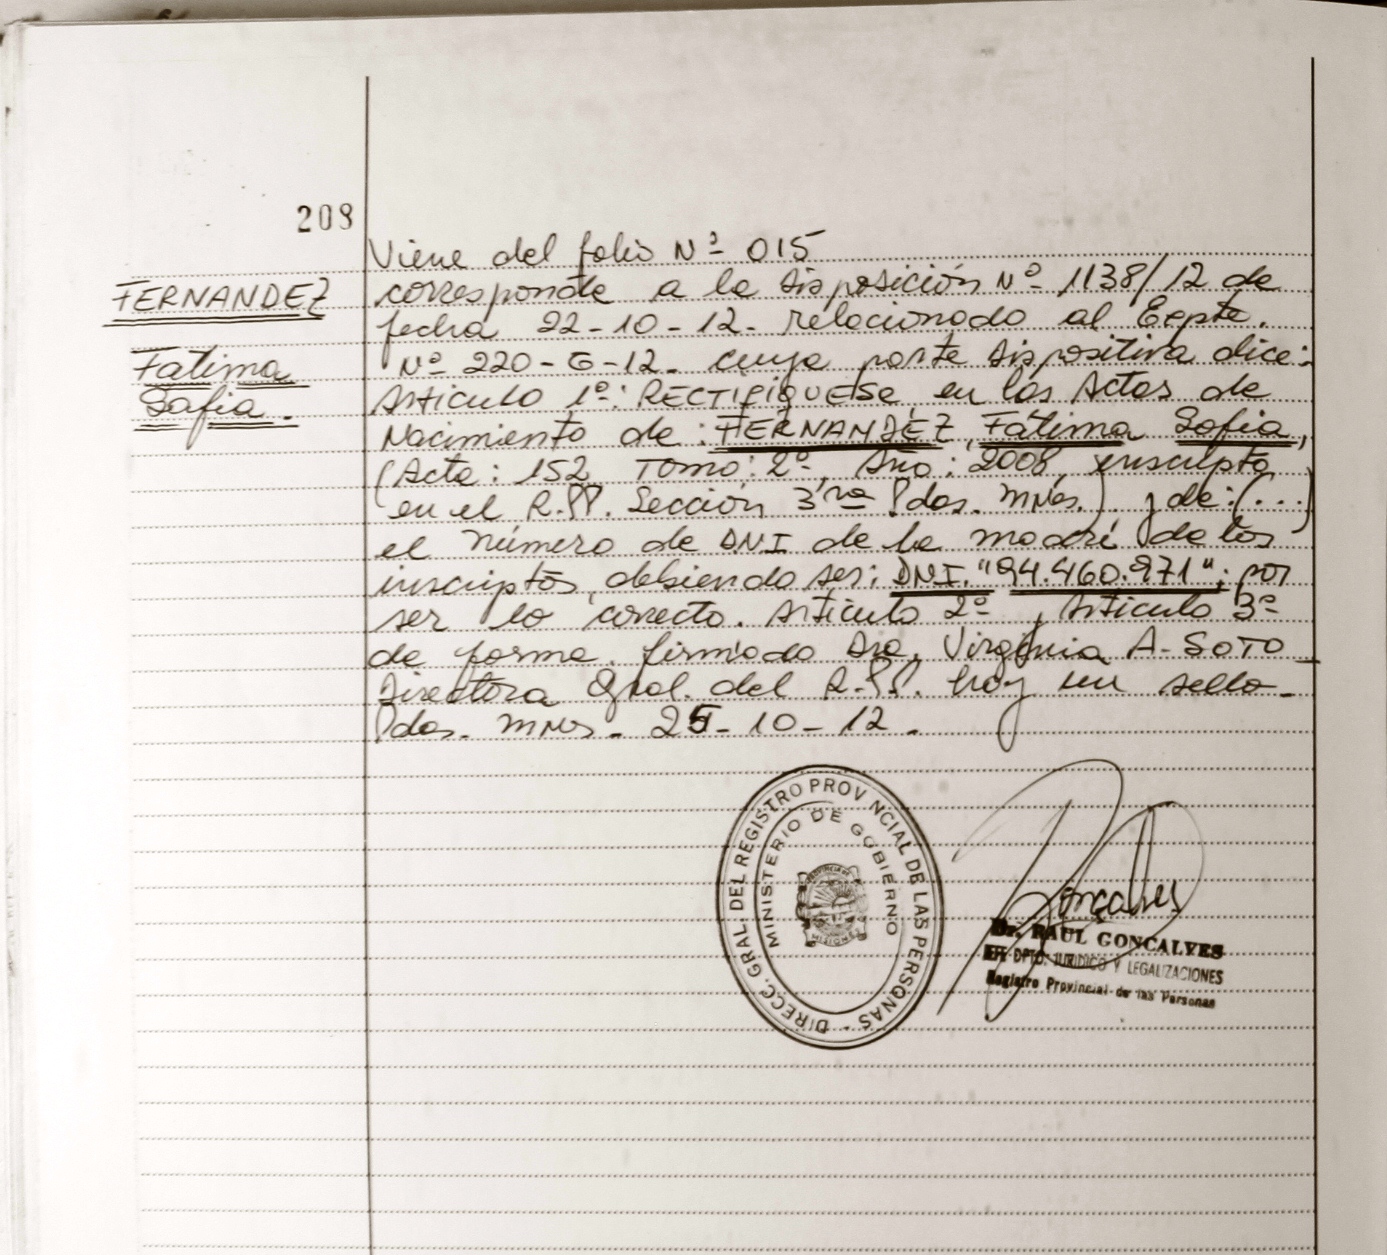 208
Viene del folio Nº 015
FERNANDEZ
Fatima
Sofia.
corresponde a la disposición Nº 1138/12 de
fecha 22-10-12. relacionado al Expte.
Nº 220-G-12. cuya parte dispositiva dice:
Articulo 1º: RECTIFIQUESE, en las Actas de
Nacimiento de: FERNANDEZ, Fátima Sofia,
(Acta: 152, Tomo: 2º, Año: 2008, inscripta
en el R.PP. Sección 3ra Pdas. Mnes.) y de: (...)
el número de DNI de la madre de los
inscriptos, debiendo ser: DNI. "94.460.971"; por
ser lo correcto. Articulo 2º y Articulo 3º
de forma. firmado Dra. Virginia A. SOTO
Directora Gral. del R.PP. hay un sello.
Pdas. Mnes. 25-10-12.
DIRECC. GRAL. DEL REGISTRO PROVINCIAL DE LAS PERSONAS -
MINISTERIO DE GOBIERNO
PROVINCIA DE
MISIONES
Goncalves
Dr. RAUL GONCALVES
DPTO. JURIDICO Y LEGALIZACIONES
Registro Provincial de las Personas